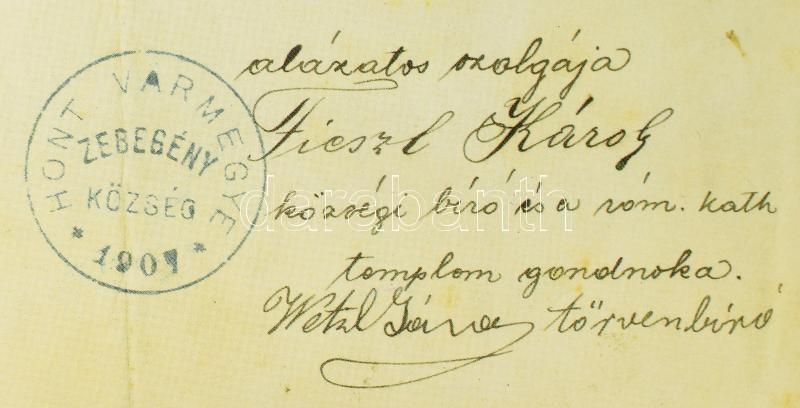 HONT VÁRMEGYE
ZEBEGÉNY
KÖZSÉG
* 1907 *
alázatos szolgája
Ficszl Károly
községi bíró és a róm. kath
templom gondnoka.
Wetzl János törvenbíró
darabanth